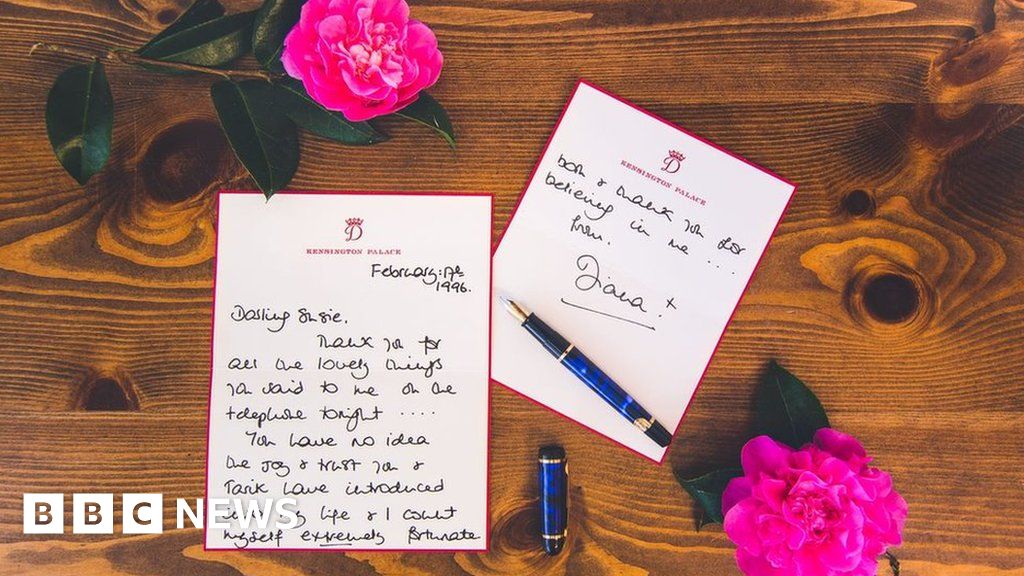 D
KENSINGTON PALACE
February: 17th
1996.
Darling Susie,
Thank you for
all the lovely things
you said to me on the
telephone tonight ....
You have no idea
the joy & trust you &
Tarik have introduced
life & I count
myself extremely fortunate
D
KENSINGTON PALACE
both & thank you for
believing in me ....
from.
Diana. x
BBC NEWS